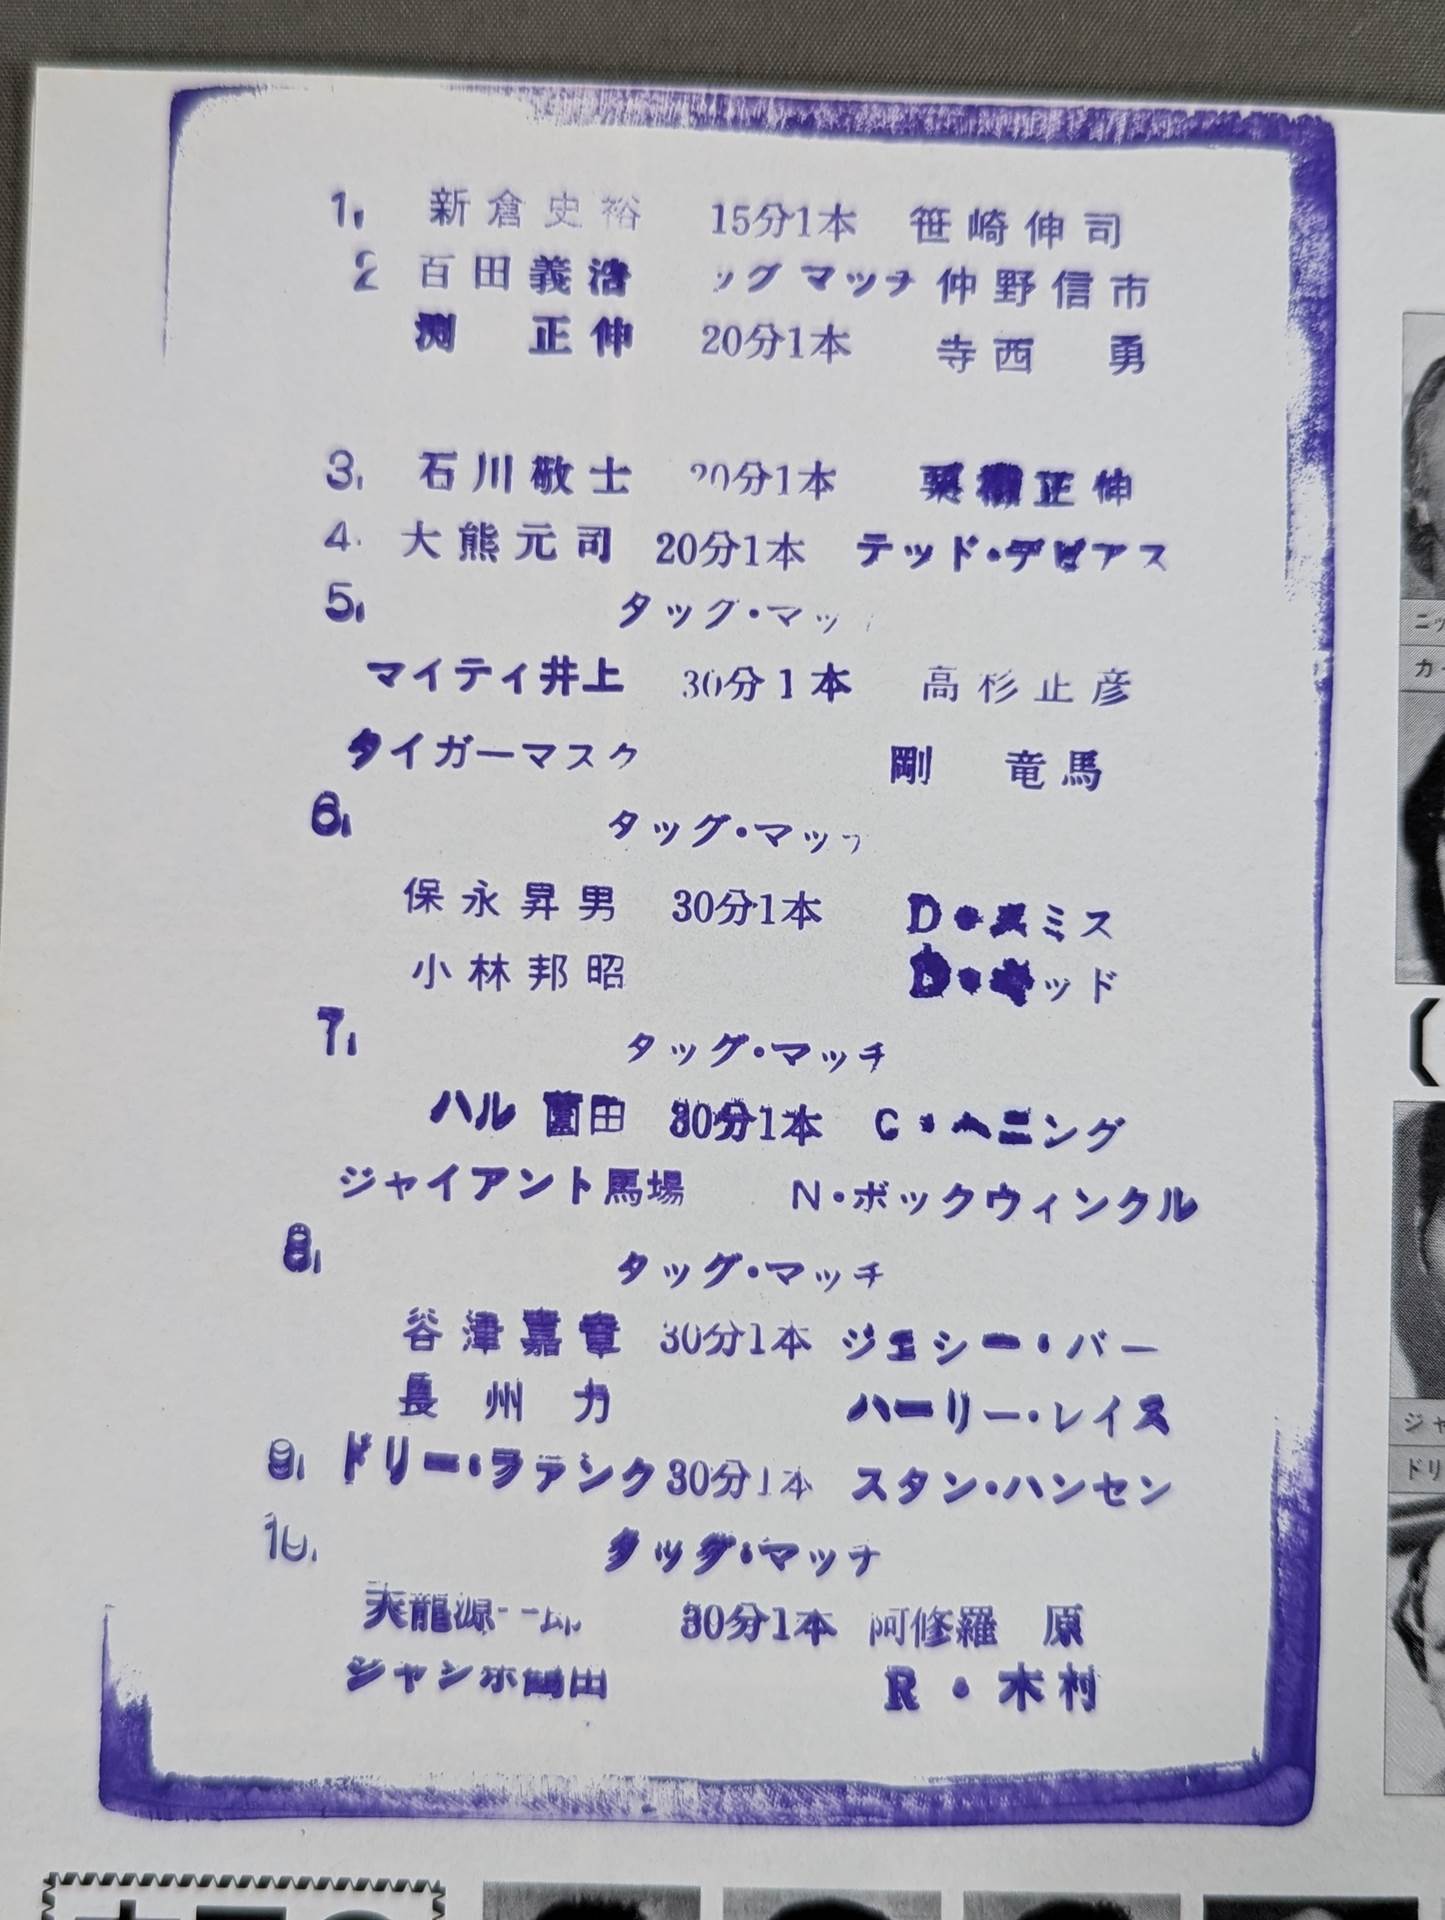 1. 新倉史裕 15分1本 笹崎伸司
2 百田義浩 ッグマッチ 仲野信市
渕 正伸 20分1本 寺西 勇
3. 石川敬士 20分1本 栗栖正伸
4. 大熊元司 20分1本 テッド・デビアス
5. タッグ・マッ
マイティ井上 30分1本 高杉正彦
タイガーマスク 剛 竜馬
6. タッグ・マッチ
保永昇男 30分1本 D・スミス
小林邦昭 D・キッド
7. タッグ・マッチ
ハル薗田 30分1本 C・ヘニング
ジャイアント馬場 N・ボックウィンクル
8. タッグ・マッチ
谷津嘉章 30分1本 ジェシー・バー
長州 力 ハーリー・レイス
9. ドリー・ファンク 30分1本 スタン・ハンセン
10. タッグ・マッチ
天龍源一郎 30分1本 阿修羅 原
ジャンボ鶴田 R・木村
ニッ
カ
ジャ
ドリ